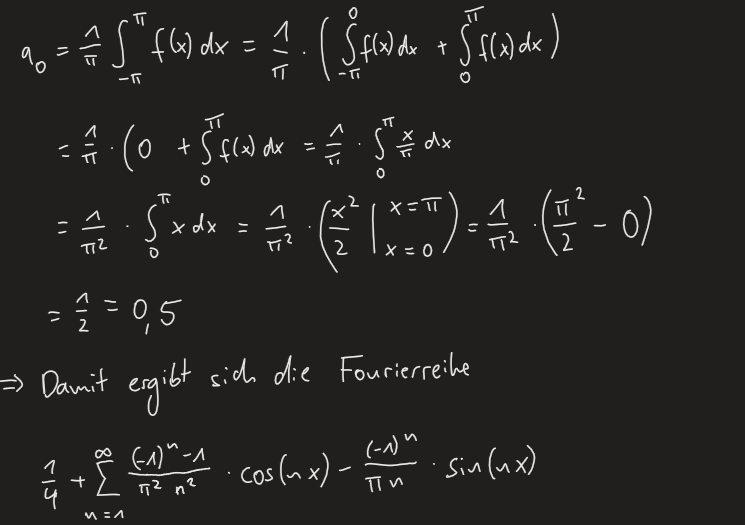 a₀ = 1/π ∫_{-π}^{π} f(x) dx = 1/π · (∫_{-π}^{0} f(x) dx + ∫_{0}^{π} f(x) dx)
= 1/π · (0 + ∫_{0}^{π} f(x) dx = 1/π · ∫_{0}^{π} x/π dx
= 1/π² · ∫_{0}^{π} x dx = 1/π² · (x²/2 |_{x=0}^{x=π}) = 1/π² · (π²/2 - 0)
= 1/2 = 0,5
⇒ Damit ergibt sich die Fourierreihe
1/4 + ∑_{n=1}^{∞} ((-1)ⁿ-1)/(π² n²) · cos(nx) - (-1)ⁿ/(πn) · sin(nx)